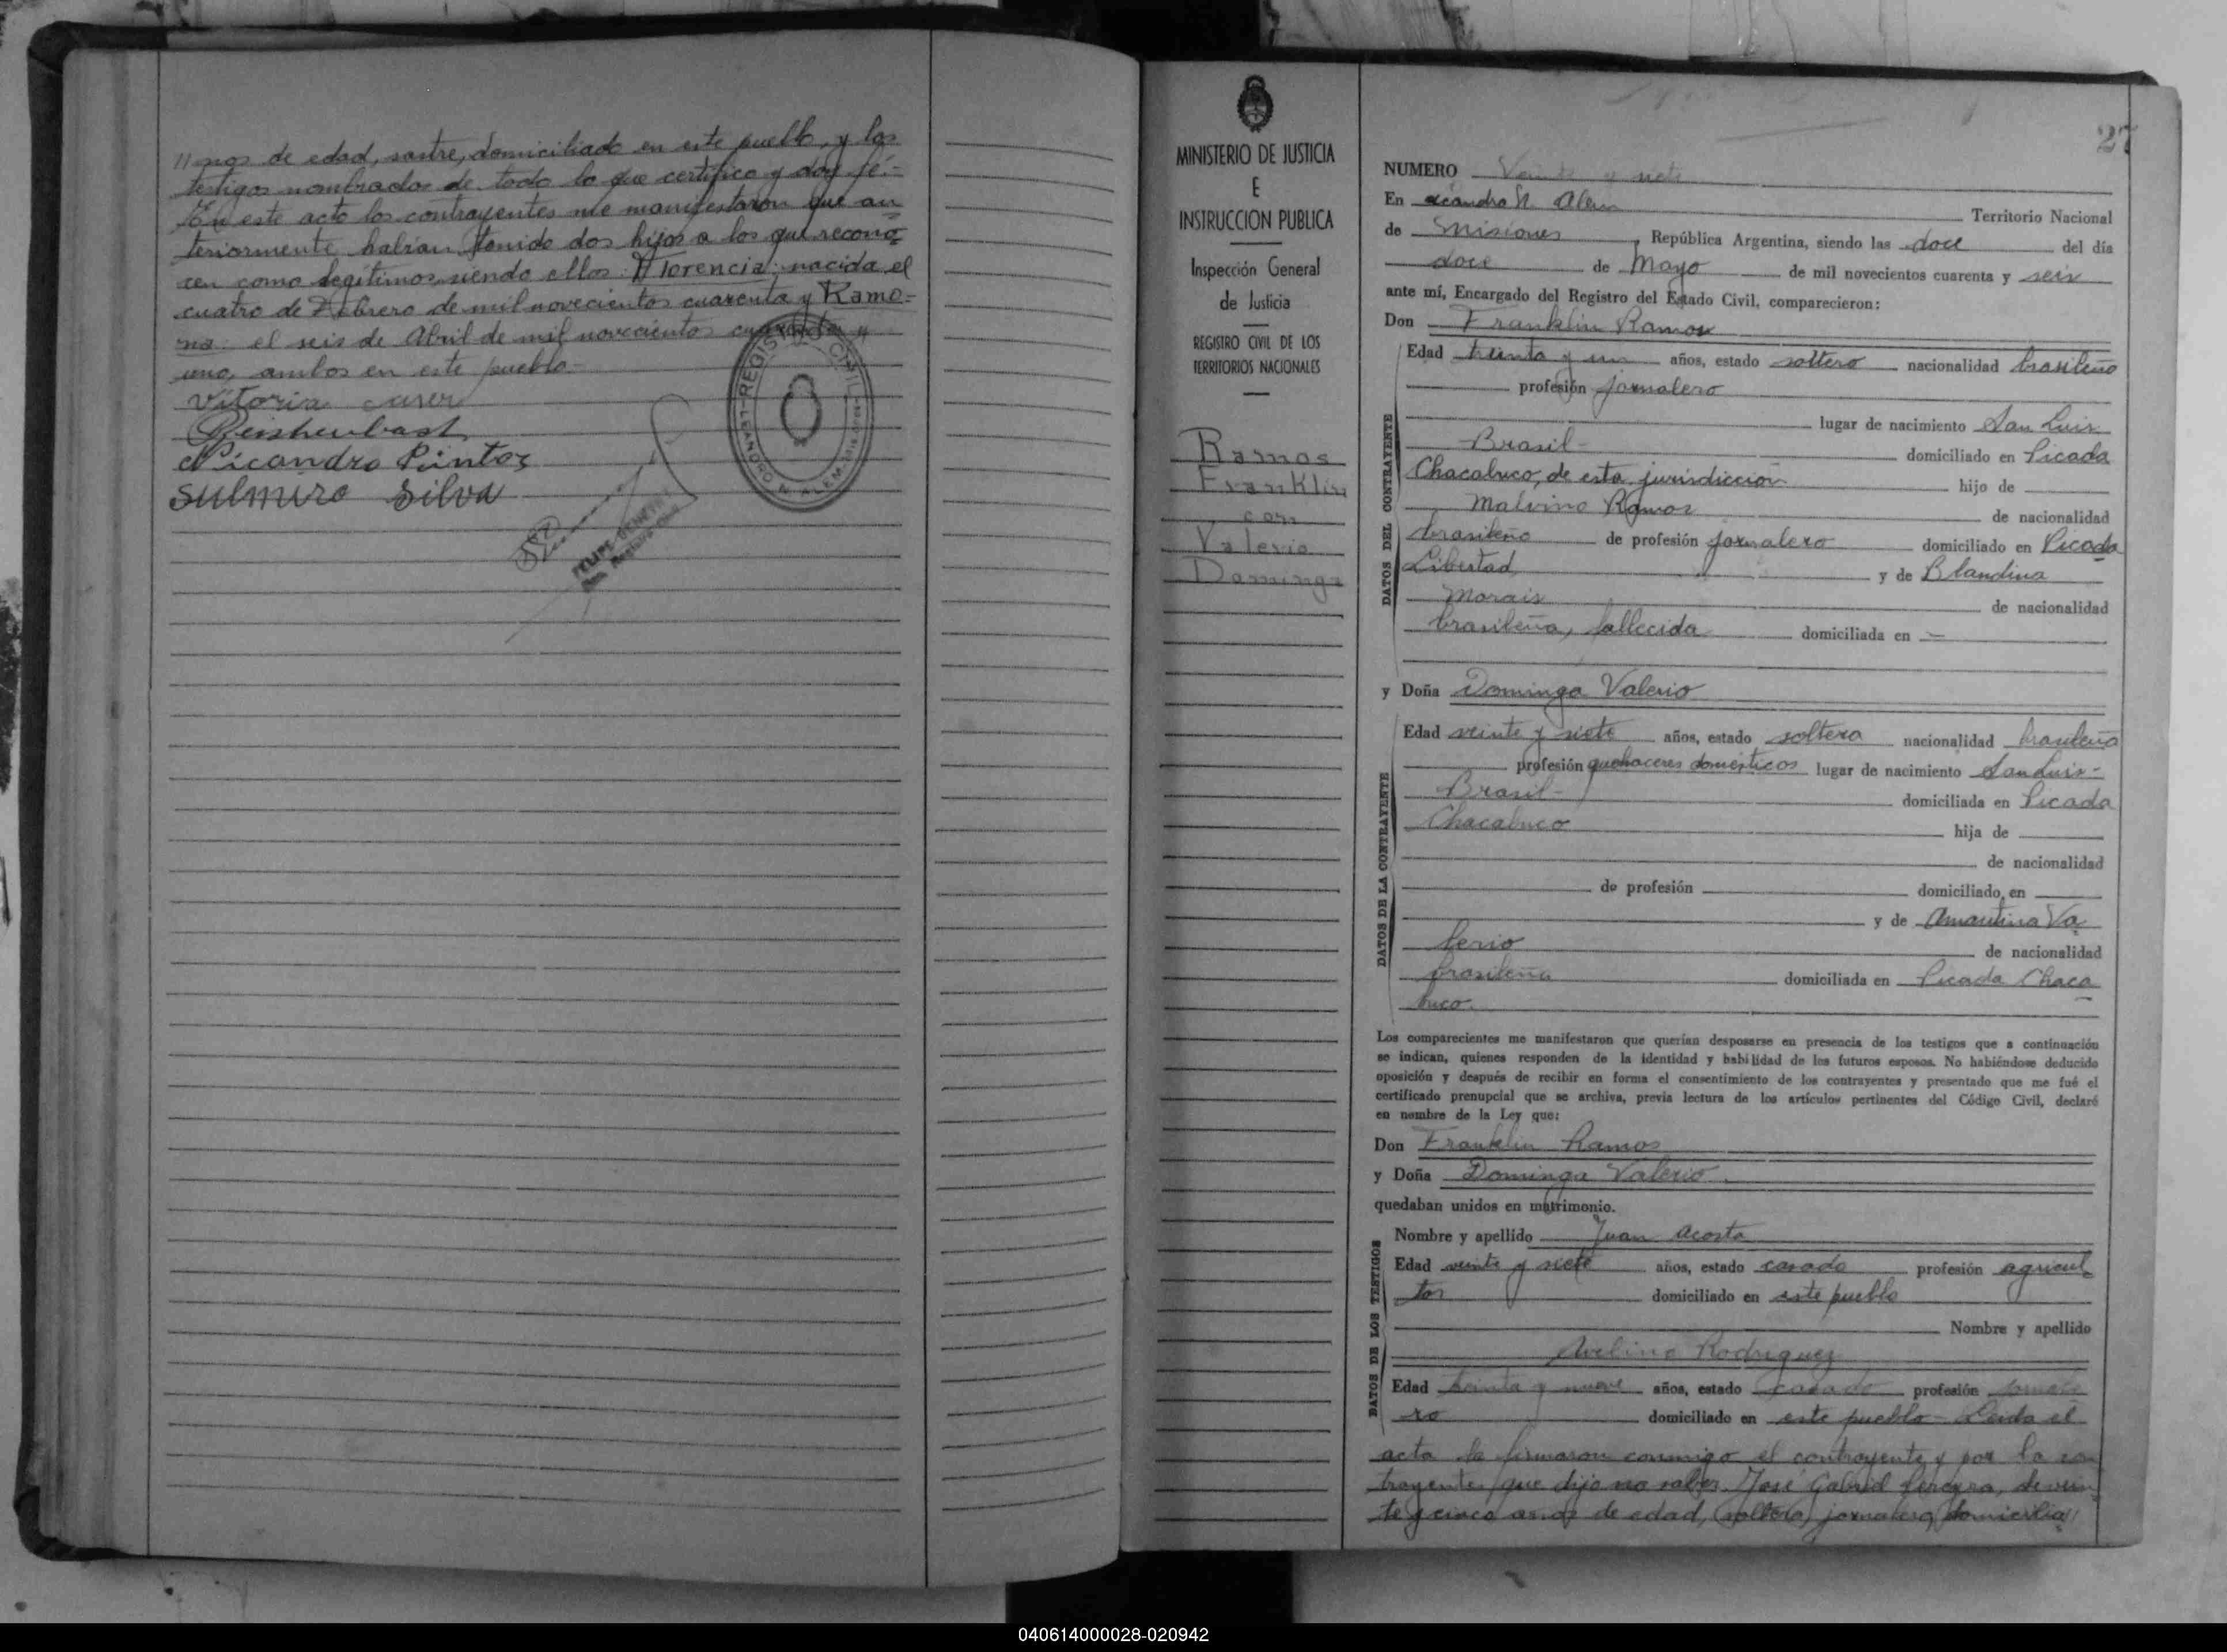 // ños de edad, sastre, domiciliado en este pueblo, y los
testigos nombrados de todo lo que certifico y doy fé.-
En este acto los contrayentes me manifestaron que an
teriormente habían tenido dos hijos a los que recono
cen como legítimos siendo ellos: Florencia: nacida el
cuatro de Febrero de mil novecientos cuarenta y Ramo=
na: el seis de Abril de mil novecientos cuarenta y
uno, ambos en este pueblo.-
Vitoria
Nicandro Pintos
Sulmiro Silva
REGISTRO CIVIL
LEANDRO N. ALEM
FELIPE
MINISTERIO DE JUSTICIA
E
INSTRUCCION PUBLICA
Inspección General
de Justicia
REGISTRO CIVIL DE LOS
TERRITORIOS NACIONALES
Ramos
Franklin
con
Valerio
Dominga
27
NUMERO Veinte y siete
En Leandro N. Alem Territorio Nacional
de Misiones, República Argentina, siendo las doce del día
doce de Mayo de mil novecientos cuarenta y seis
ante mí, Encargado del Registro del Estado Civil, comparecieron:
Don Franklin Ramos
DATOS DEL CONTRAYENTE
Edad treinta y un años, estado soltero nacionalidad brasileño
profesión jornalero
lugar de nacimiento San Luis-
Brasil- domiciliado en Picada
Chacabuco, de esta jurisdicción hijo de
Malvino Ramos de nacionalidad
brasileño de profesión jornalero domiciliado en Picada
Libertad y de Blandina
Morais de nacionalidad
brasileña, fallecida domiciliada en -
y Doña Dominga Valerio
DATOS DE LA CONTRAYENTE
Edad veinte y siete años, estado soltera nacionalidad brasileña
profesión quehaceres domésticos lugar de nacimiento San Luis-
Brasil- domiciliada en Picada
Chacabuco hija de
de nacionalidad
de profesión domiciliado en
y de Amantina Va
lerio de nacionalidad
brasileña domiciliada en Picada Chaca
buco.
Los comparecientes me manifestaron que querían desposarse en presencia de los testigos que a continuación
se indican, quienes responden de la identidad y habilidad de los futuros esposos. No habiéndose deducido
oposición y después de recibir en forma el consentimiento de los contrayentes y presentado que me fué el
certificado prenupcial que se archiva, previa lectura de los artículos pertinentes del Código Civil, declaré
en nombre de la Ley que:
Don Franklin Ramos
y Doña Dominga Valerio.
quedaban unidos en matrimonio.
DATOS DE LOS TESTIGOS
Nombre y apellido Juan Acosta
Edad veinte y siete años, estado casado profesión agricul
tor domiciliado en este pueblo
Nombre y apellido
Avelino Rodriguez
Edad treinta y nueve años, estado casado profesión jornale
ro domiciliado en este pueblo- Leída el
acta la firmaron conmigo el contrayente y por la con
trayente, que dijo no saber, José Gabriel Pereyra, de vein
te y cinco años de edad, soltero, jornalero, domicilia//
040614000028-020942